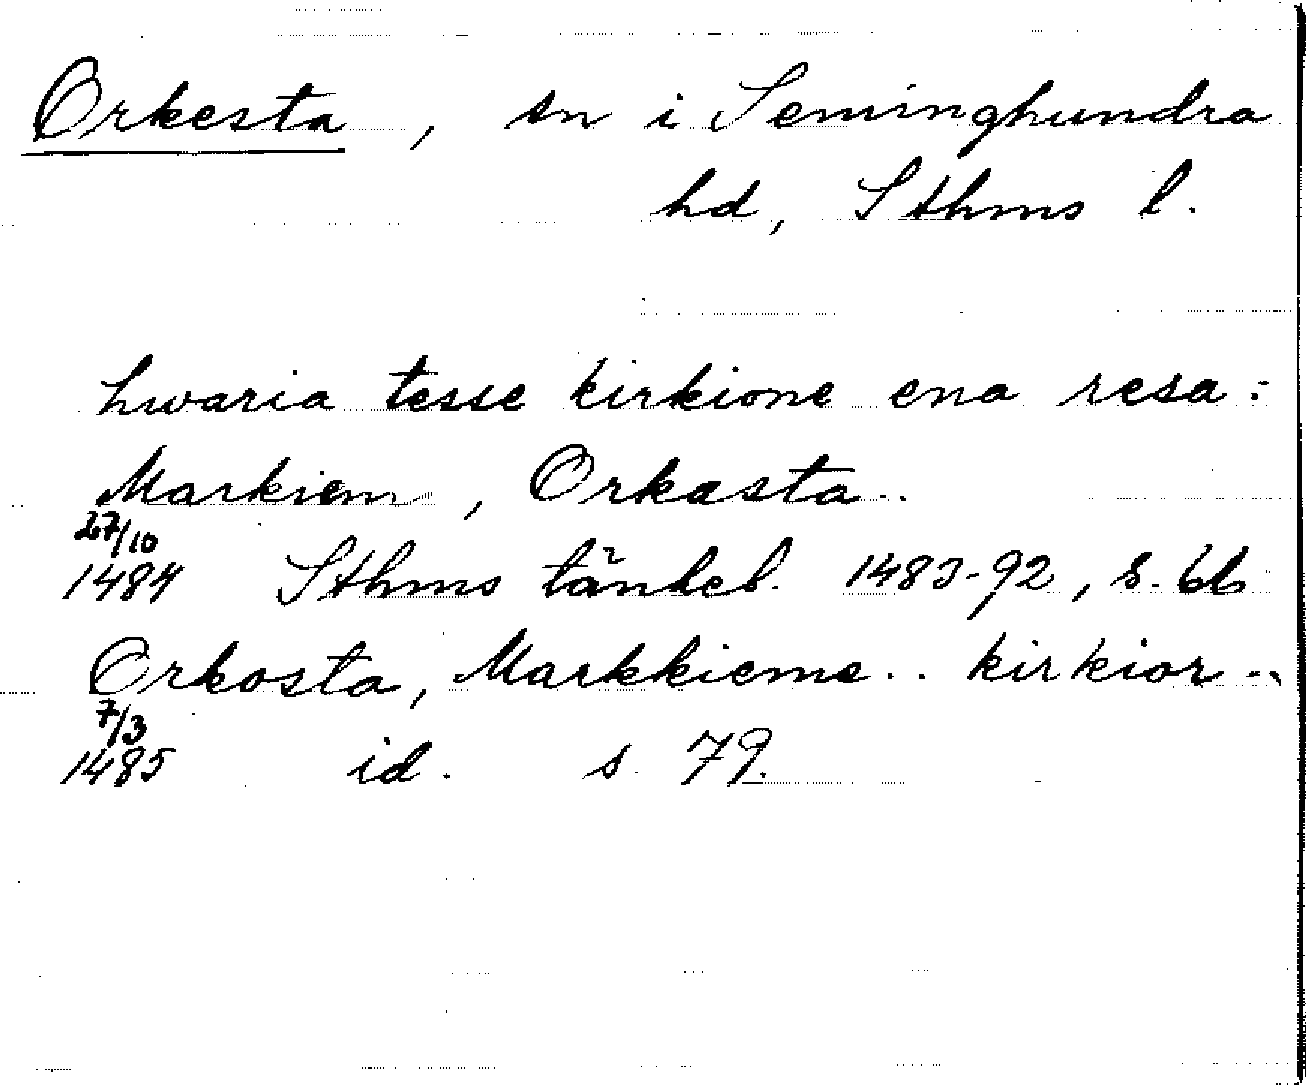 Orkesta, sn i Seminghundra
hd, Sthms l.
hwaria tesse kirkione ena resa:
Markiem, Orkasta..
27/10
1484 Sthms tänkeb. 1483-92, s. 66
Orkosta, Markkieme.. kirkior..
7/3
1485 id. s. 79.